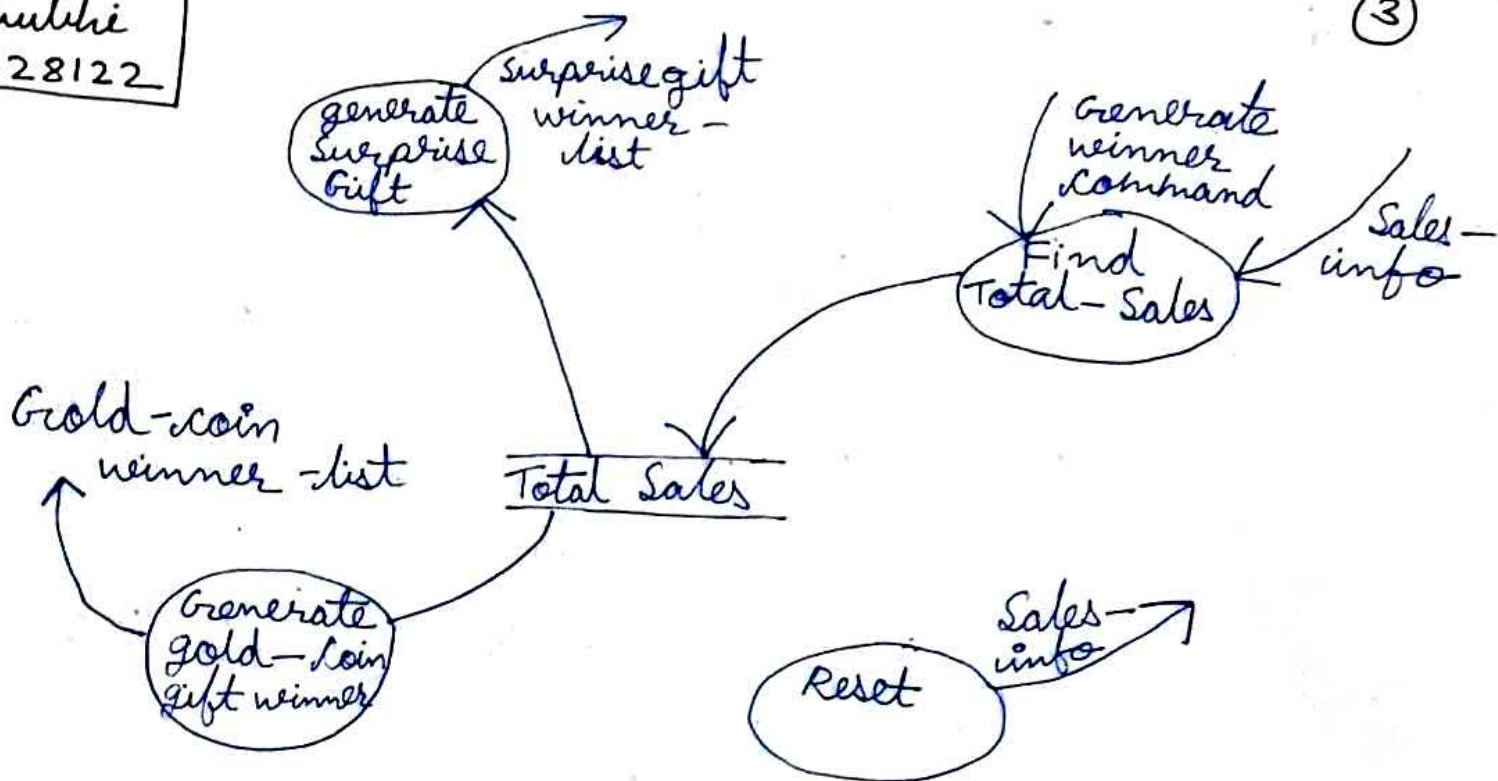 28122
3
surprise gift
winner -
list
generate
Surprise
Gift
Generate
winner
command
Sales -
info
Find
Total - Sales
Gold - coin
winner - list
Total Sales
Generate
gold - coin
gift winner
Sales -
info
Reset